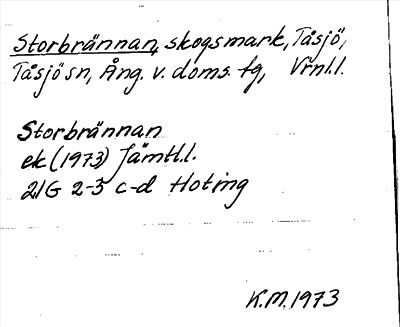 Storbrännan, skogsmark, Tåsjö,
Tåsjö sn, Ång. v. doms. fg, Vrnl.l.
Storbrännan
ek (1973) Jämtl.l.
21G 2-3 c-d Hoting
K.M. 1973